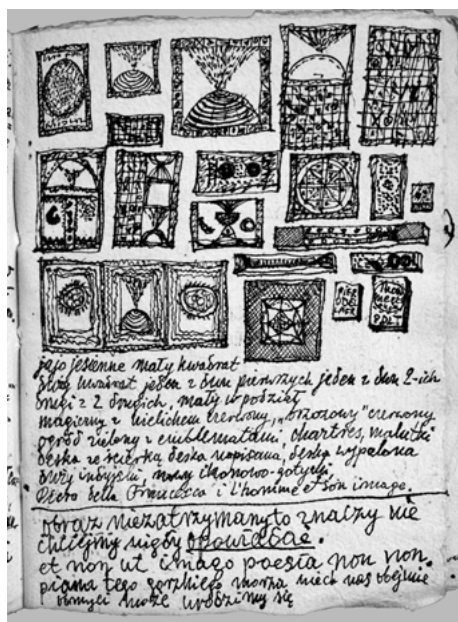 jajo jesienne mały kwadrat
duży kwadrat jeden z dwu pierwszych jeden z dwu 2-ich
drugi z 2 drugich, mały w podział
magiczny z kielichem czerwony, "brzozowy" czerwony
ogród zielony z emblematami, chartres, malutki
deska ze ścierką deska napisana, deska wypalona
duży indyjski, nowy ikonowo-gotycki.
Piero della Francesca i l'homme et son image.
obraz niezatrzymany to znaczy nie
chciejmy nigdy opowiadać.
et non ut imago poesia non non.
piana tego gorzkiego morza niech nas obejmie
obmyci może urodzimy się